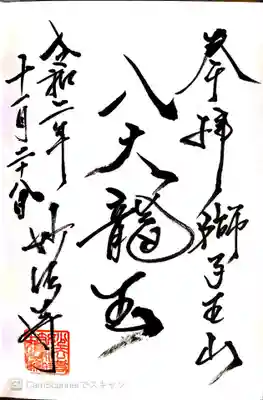 奉拝 獅子王山
八大龍王
令和二年
十一月二十八日
妙法寺
CamScannerでスキャン